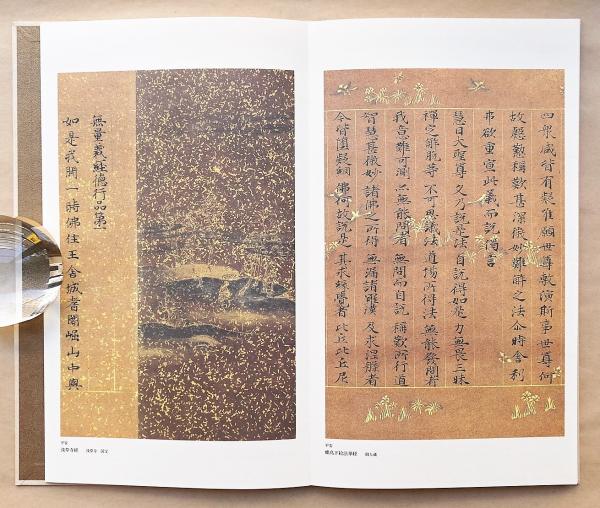 四衆咸皆有疑唯願世尊敷演斯事世尊何
故慇懃稱歎甚深微妙難解之法尒時舍利
弗欲重宣此義而說偈言
慧日大聖尊 久乃說是法 自說得如是 力無畏三昧
禪定解脫等 不可思議法 道場所得法 無能發問者
我意難可測 亦無能問者 無問而自說 稱歎所行道
智慧甚微妙 諸佛之所得 無漏諸羅漢 及求涅槃者
今皆墮疑網 佛何故說是 其求緣覺者 比丘比丘尼
平安
無量義經德行品第一
如是我聞一時佛住王舍城耆闍崛山中與
平安
浅草寺経 浅草寺 国宝